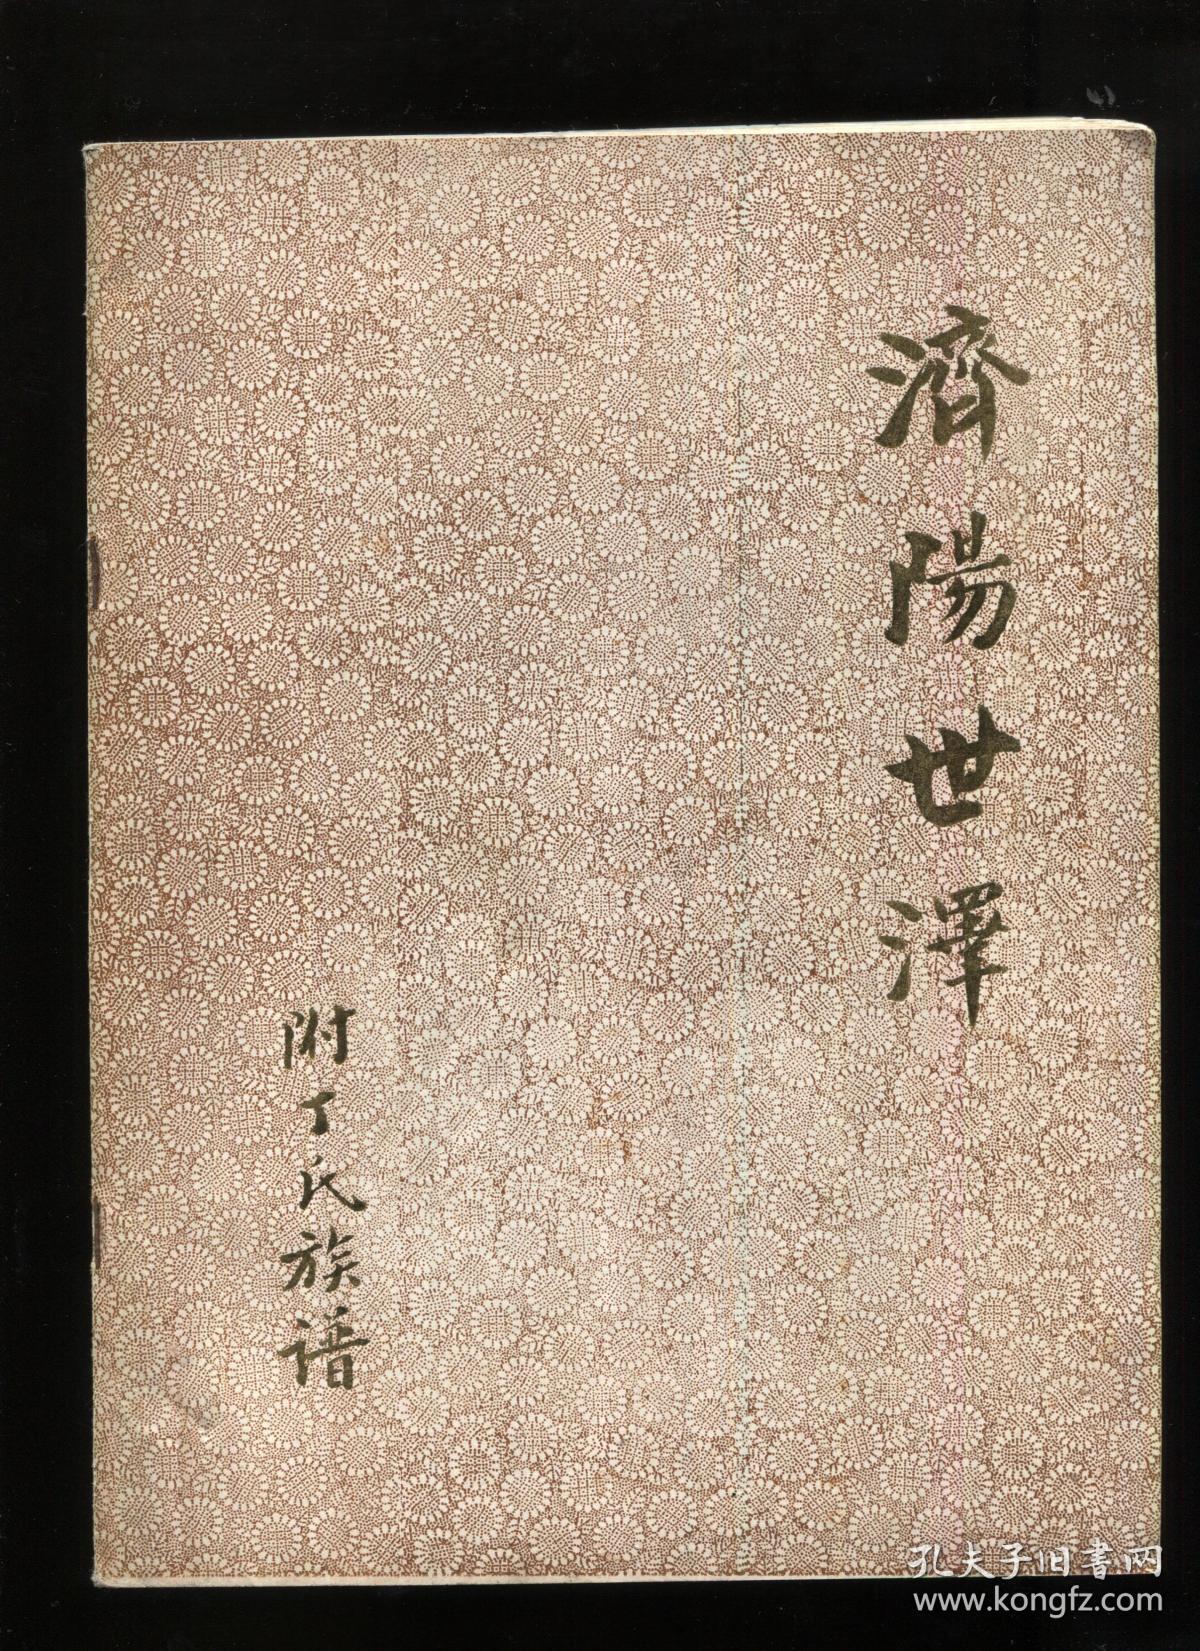 濟陽世澤
附丁氏族谱
孔夫子旧書网
www.kongfz.com